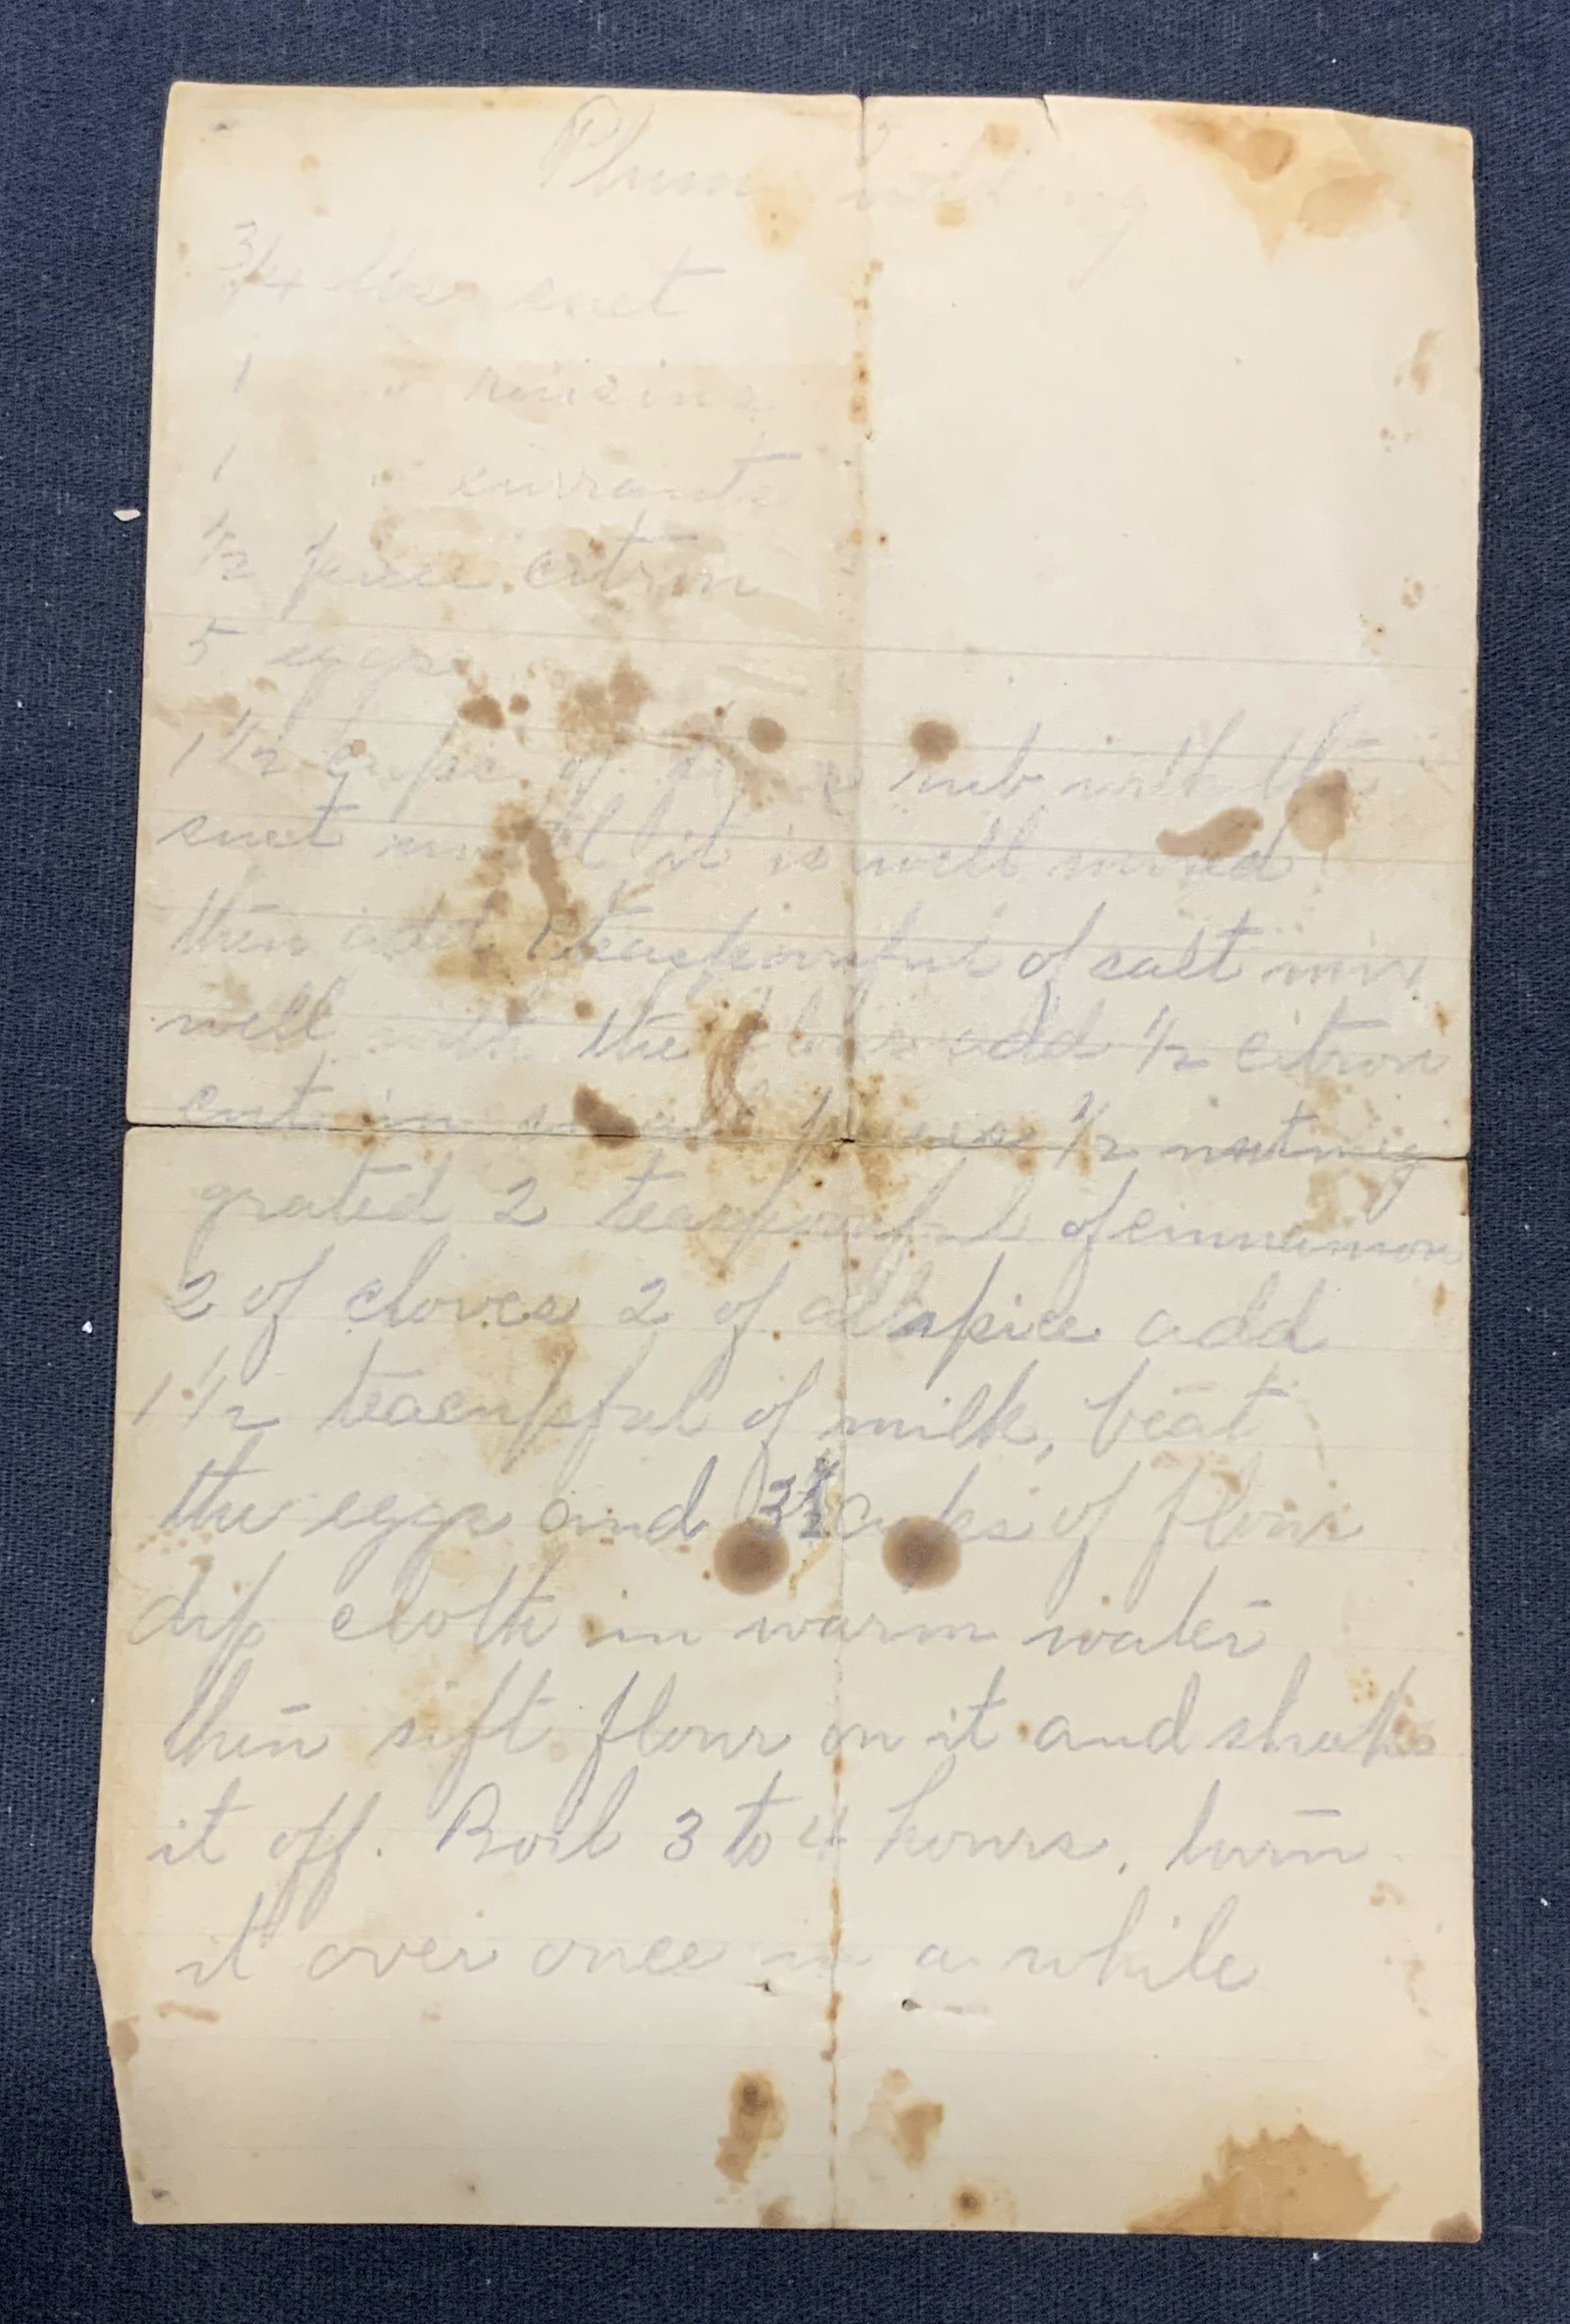 Plum Pudding
3/4 lbs suet
1 " raisins
1 " currants
1/2 piece citron
5 eggs
1 1/2 cups of sugar rub with the
suet until it is well mixed
then add 1 teaspoonful of salt mix
well with the add 1/2 citron
cut in small pieces 1/2 nutmeg
grated 2 teaspoonful of cinnamon
2 of cloves 2 of allspice add
1 1/2 teacupful of milk, beat
the eggs and cups of flour
dip cloth in warm water
then sift flour on it and shake
it off. Boil 3 to 4 hours, turn
it over once in a while